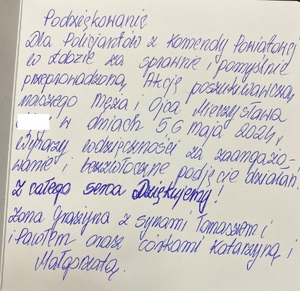 Podziękowanie
Dla Policjantów z Komendy Powiatowej
w Łobzie za sprawnie i pomyślnie
przeprowadzoną Akcję poszukiwawczą
naszego Męża i Ojca Mieczysława
w dniach 5,6 maja 2024r,
Wyrazy wdzięczności za zaangażo-
wanie i bezzwłoczne podjęcie działań
Z całego serca Dziękujemy!
żona Grażyna z synami Tomaszem i
i Pawłem oraz córkami Katarzyną i
Małgorzatą.